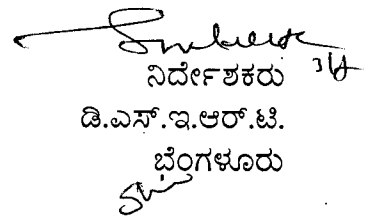 ನಿರ್ದೇಶಕರು
ಡಿ.ಎಸ್.ಇ.ಆರ್.ಟಿ.
ಬೆಂಗಳೂರು